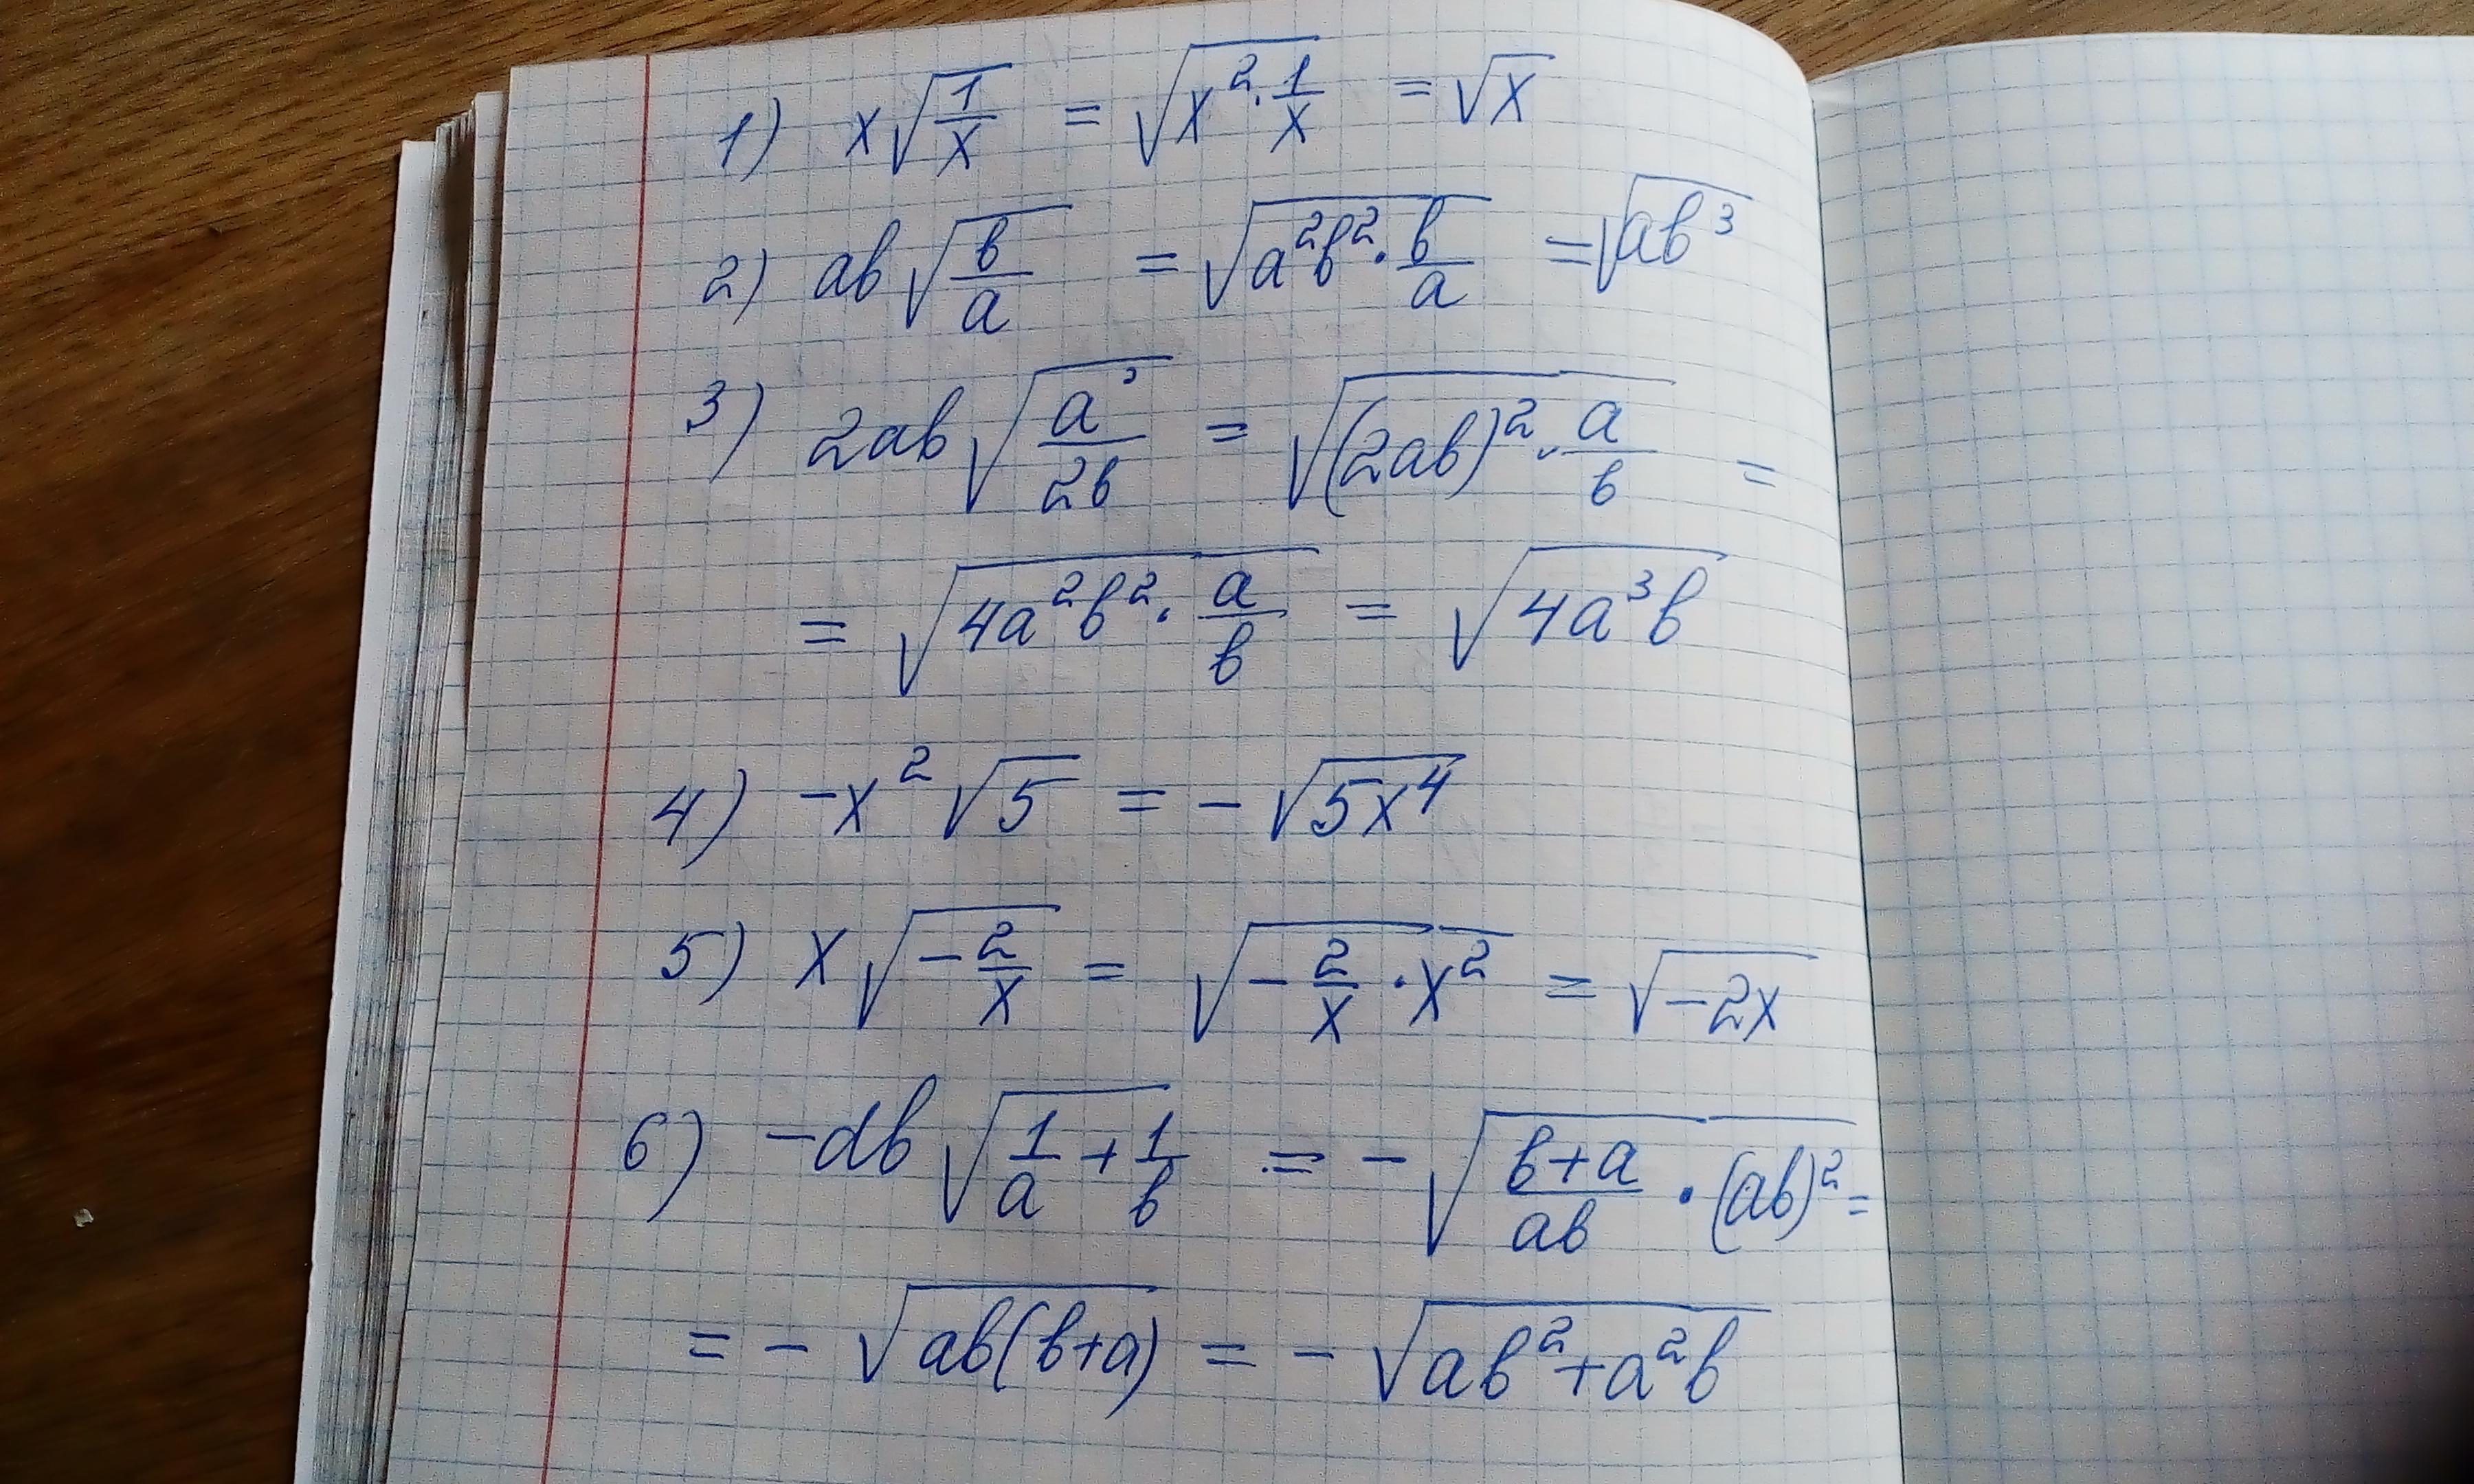 1) x√(1/x) = √(x²·1/x) = √x
2) ab√(b/a) = √(a²b²·b/a) = √(ab³)
3) 2ab√(a/2b) = √((2ab)²·a/b) =
= √(4a²b²·a/b) = √(4a³b)
4) -x²√5 = -√(5x⁴)
5) x√(-2/x) = √(-2/x·x²) = √(-2x)
6) -ab√(1/a+1/b) = -√((b+a)/ab·(ab)²) =
= -√(ab(b+a)) = -√(ab²+a²b)